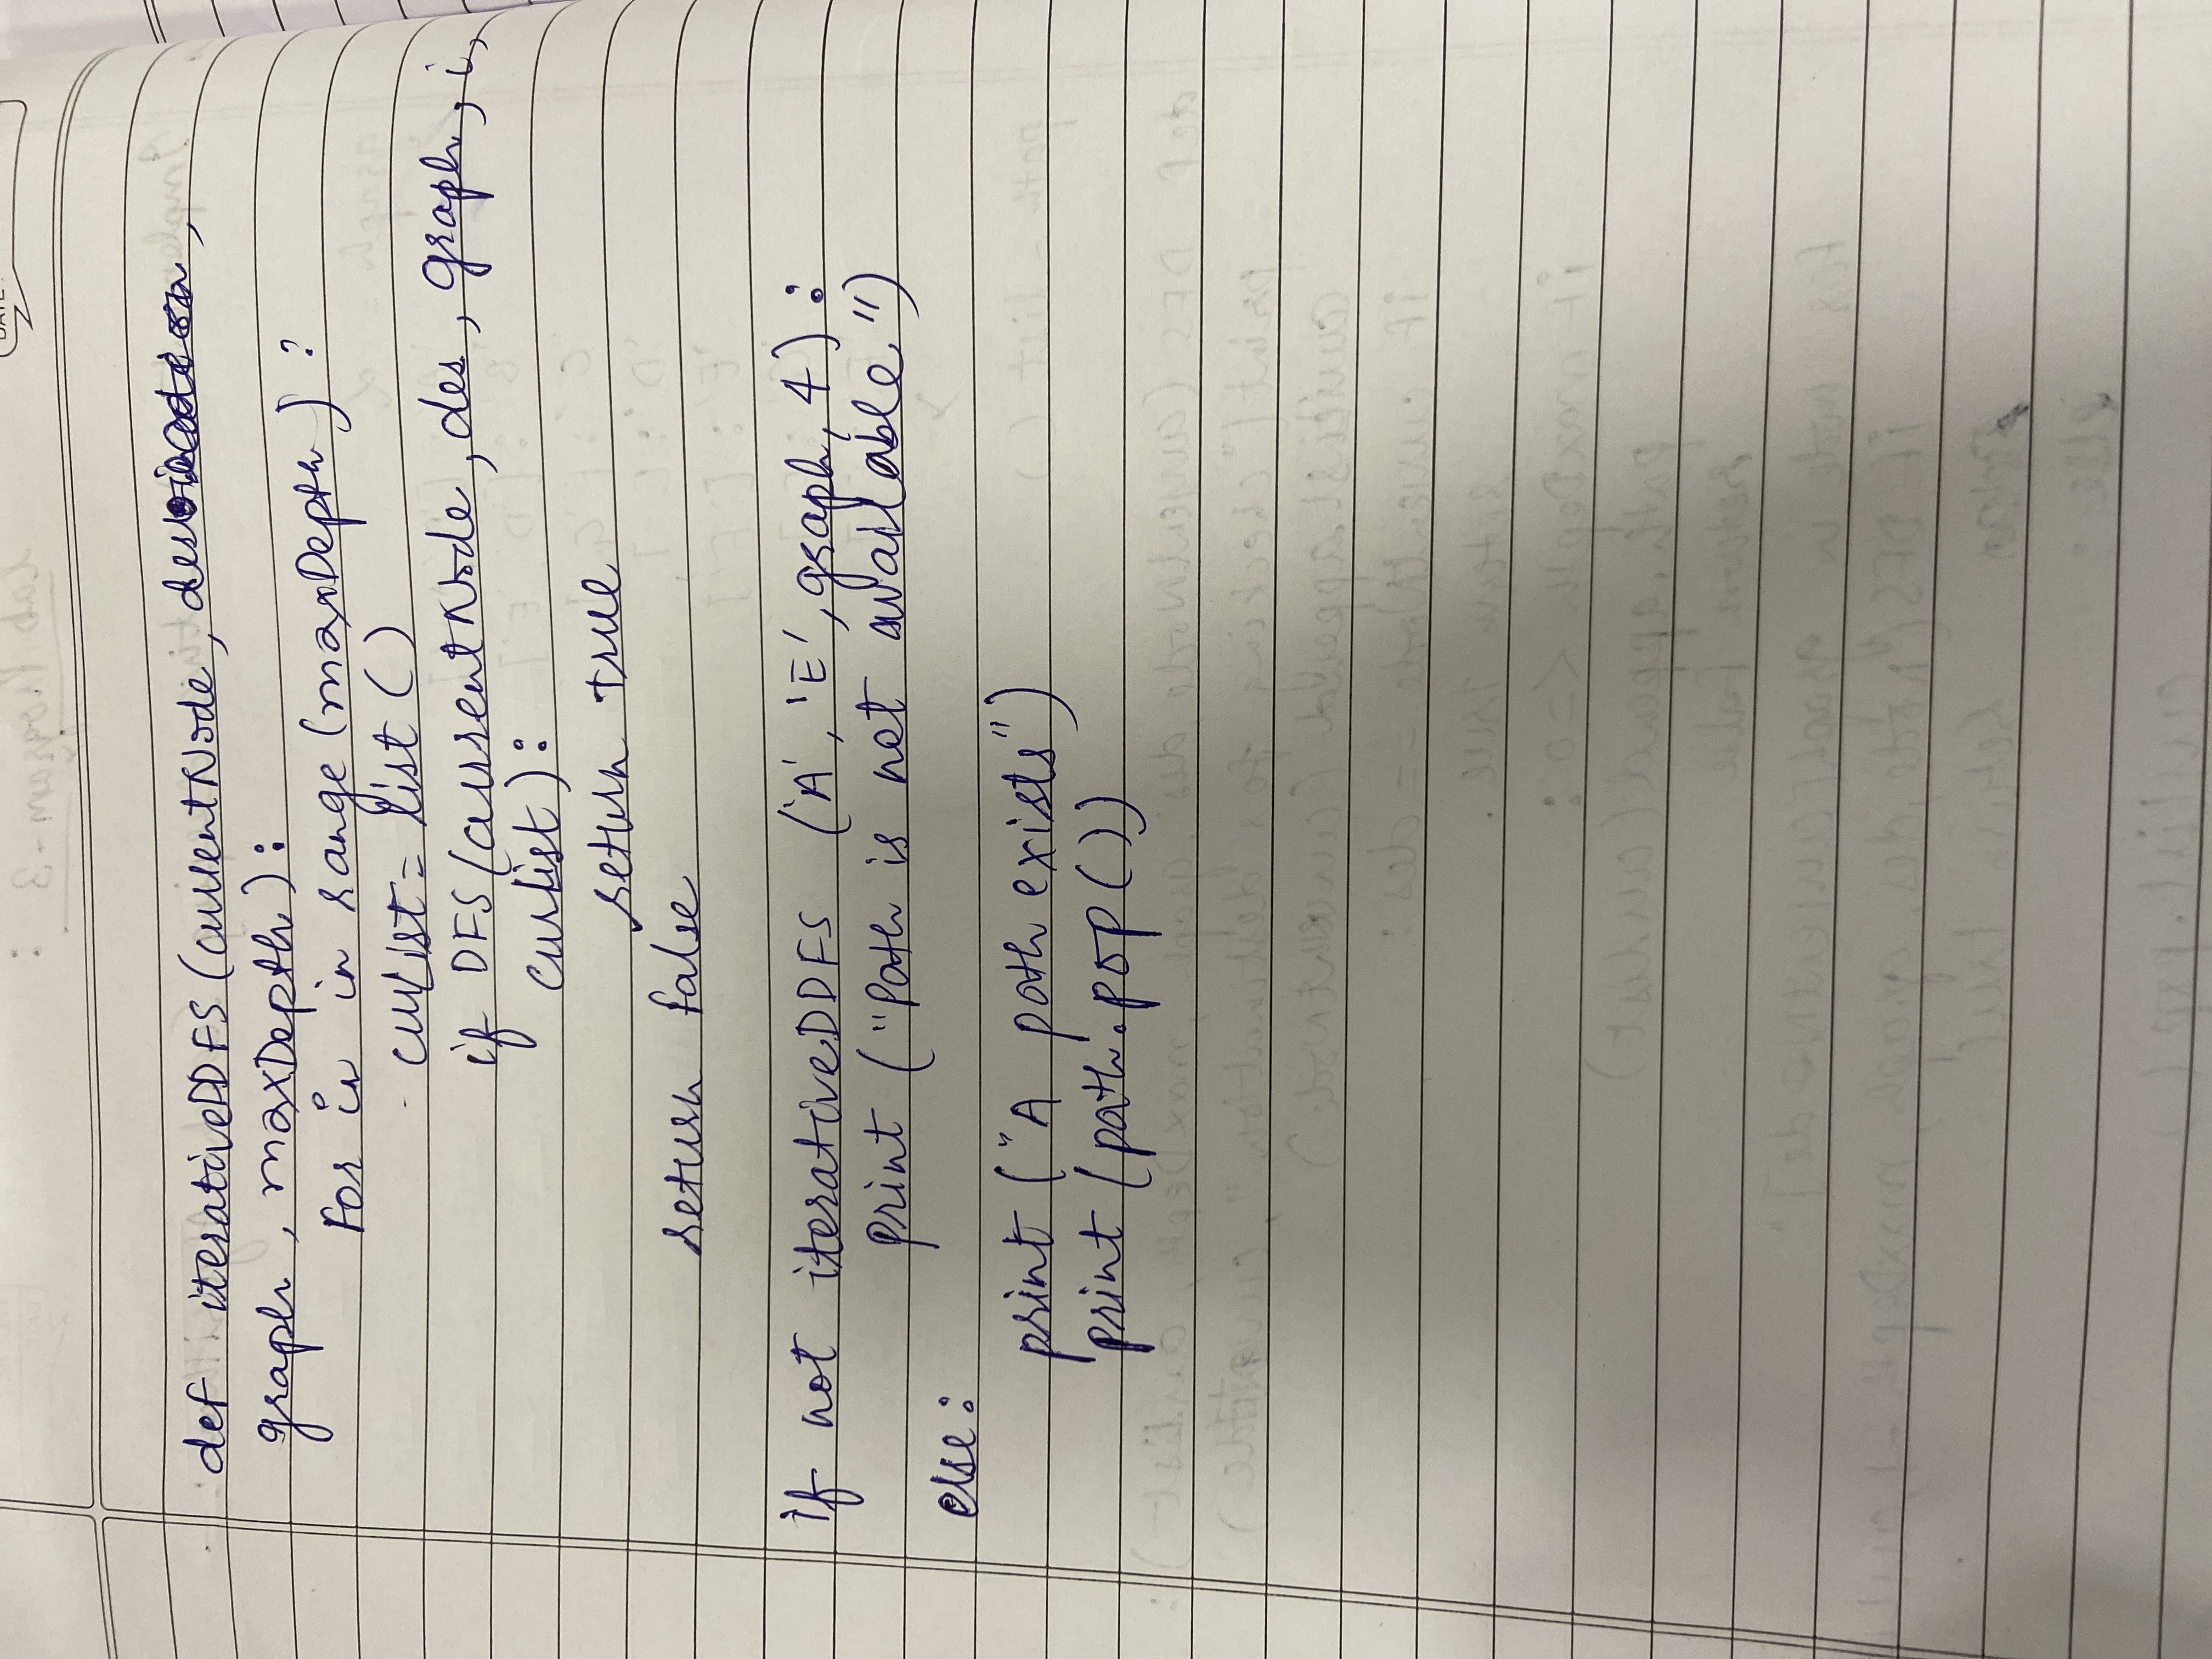 DATE:
def iterativeDDFS (currentNode, des,
graph, maxDepth):
for i in range (maxDepth):
curList = list ()
if DFS (currentNode, des, graph, i,
curList):
return true
return false
if not iterativeDDFS ('A', 'E', graph, 4):
print ("Path is not available")
else:
print ("A path exists")
print (path.pop ())